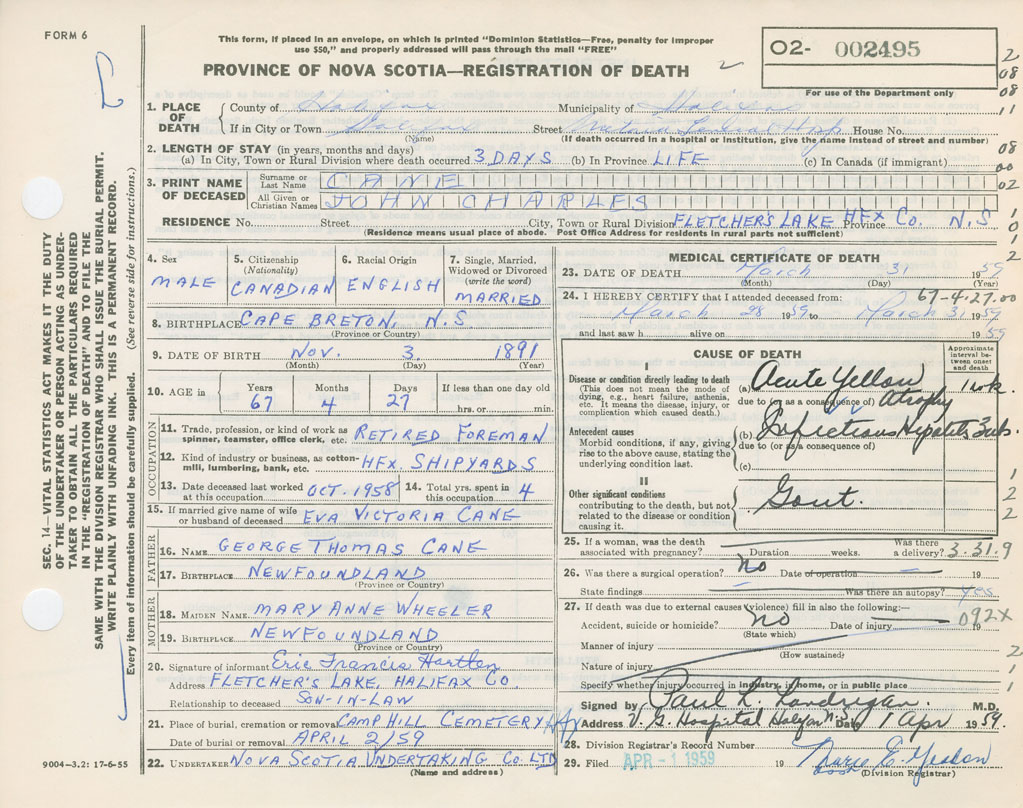 FORM 6
This form, if placed in an envelope, on which is printed "Dominion Statistics—Free, penalty for improper
use $50," and properly addressed will pass through the mail "FREE"
PROVINCE OF NOVA SCOTIA—REGISTRATION OF DEATH
O2- 002495
For use of the Department only
2
08
08
11
08
00
02
1
0
1
2
1. PLACE OF DEATH County of Halifax Municipality of Halifax
If in City or Town Halifax Street Victoria General Hosp House No.
(Name) (If death occurred in a hospital or institution, give the name instead of street and number)
2. LENGTH OF STAY (in years, months and days)
(a) In City, Town or Rural Division where death occurred 3 DAYS (b) In Province LIFE (c) In Canada (if immigrant)
3. PRINT NAME OF DECEASED
Surname or Last Name CANE
All Given or Christian Names JOHN CHARLES
RESIDENCE No. Street City, Town or Rural Division FLETCHER'S LAKE HFX Co. Province N.S
(Residence means usual place of abode. Post Office Address for residents in rural parts not sufficient)
4. Sex MALE
5. Citizenship (Nationality) CANADIAN
6. Racial Origin ENGLISH
7. Single, Married, Widowed or Divorced (write the word) MARRIED
8. BIRTHPLACE CAPE BRETON, N.S
(Province or Country)
9. DATE OF BIRTH Nov. 3. 1891
(Month) (Day) (Year)
10. AGE in Years Months Days If less than one day old
67 4 27 hrs. or min.
OCCUPATION
11. Trade, profession, or kind of work as spinner, teamster, office clerk, etc. RETIRED FOREMAN
12. Kind of industry or business, as cotton-mill, lumbering, bank, etc. HFX. SHIPYARDS
13. Date deceased last worked at this occupation OCT. 1958
14. Total yrs. spent in this occupation 4
15. If married give name of wife or husband of deceased EVA VICTORIA CANE
FATHER
16. NAME GEORGE THOMAS CANE
17. BIRTHPLACE NEWFOUNDLAND
(Province or Country)
MOTHER
18. MAIDEN NAME MARY ANNE WHEELER
19. BIRTHPLACE NEWFOUNDLAND
(Province or Country)
20. Signature of informant Eric Francis Hartlen
Address FLETCHER'S LAKE, HALIFAX CO
Relationship to deceased SON-IN-LAW
21. Place of burial, cremation or removal CAMP HILL CEMETERY Hfx
Date of burial or removal APRIL 2/59
22. UNDERTAKER NOVA SCOTIA UNDERTAKING CO. LTD
(Name and address)
9004-3.2: 17-6-55
MEDICAL CERTIFICATE OF DEATH
23. DATE OF DEATH March 31 1959
(Month) (Day) (Year)
24. I HEREBY CERTIFY that I attended deceased from: 67-4-27.00
March 28 1959 to March 31 1959
and last saw h alive on 1959
CAUSE OF DEATH
Approximate interval between onset and death
I
Disease or condition directly leading to death
(This does not mean the mode of dying, e.g., heart failure, asthenia, etc. It means the disease, injury, or complication which caused death.)
(a) Acute Yellow Atrophy 1 wk.
due to (or as a consequence of)
Antecedent causes
Morbid conditions, if any, giving rise to the above cause, stating the underlying condition last.
(b) Infectious Hepatitis 3 wks.
due to (or as a consequence of)
(c)
II
Other significant conditions
contributing to the death, but not related to the disease or condition causing it.
Gout.
1
2
2
25. If a woman, was the death associated with pregnancy? Duration weeks. Was there a delivery? 3.31.9
26. Was there a surgical operation? No Date of operation 19
State findings Was there an autopsy? yes
27. If death was due to external causes (violence) fill in also the following:—
Accident, suicide or homicide? No Date of injury 19
(State which)
092X
Manner of injury
(How sustained)
2
Nature of injury
1
Specify whether injury occurred in industry, in home, or in public place
1
Signed by Paul L. Landrigan M.D.
Address V. G. Hospital Halifax N.S Date 1 Apr 1959.
28. Division Registrar's Record Number
29. Filed APR - 1 1959 19 Marie E.
(Division Registrar)
SEC. 14—VITAL STATISTICS ACT MAKES IT THE DUTY
OF THE UNDERTAKER OR PERSON ACTING AS UNDER-
TAKER TO OBTAIN ALL THE PARTICULARS REQUIRED
IN THE "REGISTRATION OF DEATH" AND TO FILE THE
SAME WITH THE DIVISION REGISTRAR WHO SHALL ISSUE THE BURIAL PERMIT.
WRITE PLAINLY WITH UNFADING INK. THIS IS A PERMANENT RECORD.
Every item of information should be carefully supplied. (See reverse side for instructions.)